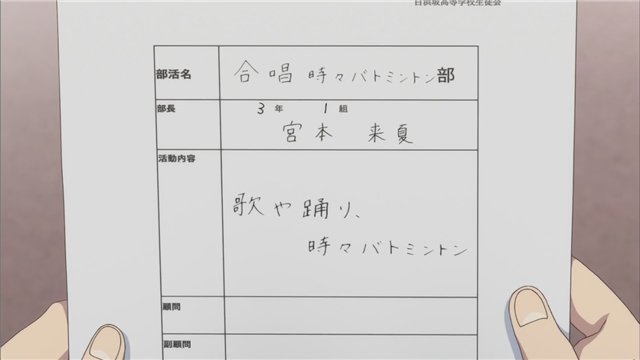 白浜坂高等学校生徒会
部活名 合唱時々バトミントン部
部長 3年 1組
宮本 来夏
活動内容
歌や踊り、
時々バトミントン
顧問
副顧問